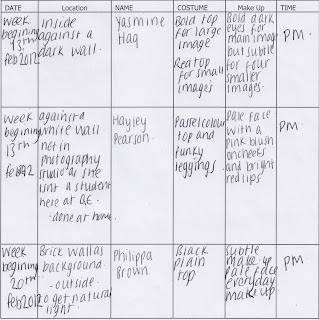 DATE Location NAME COSTUME Make Up TIME
week
begining
13th
feb 2012
inside
against a
dark wall.
Yasmine
Haq
Bold top
for large
image
Red top for
small
images
Bold dark
eyes for
main image
but subtle
for four
smaller
images.
PM.
week
begining
13th
against a
white wall
not in
photography
studio as she
isnt a student
here at QE.
- done at home.
Hayley
Pearson.
Pastel colour
top and
funky
leggings.
Pale face
with a
pink blush
on cheeks
and bright
red lips
PM.
week
begining
20th
feb 2012
Brick wall as
background.
- outside.
to get natural
light.
Philippa
Brown
Black
plain
top.
Subtle
make-up
pale face
everyday
make up.
PM